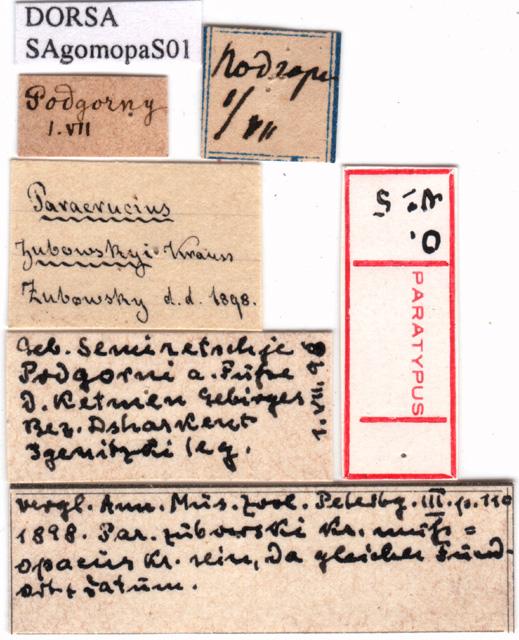 DORSA
SAgomopaS01
Podgorny
I.VII
Подгорн
I/VII
Paracrucius
Zubowskyi Krauss
Zubowsky d. d. 1898.
Geb. Semiretschje
Podgorni a. Fusse
d. Ketmen Gebirges
Bez. Dsharkent
Igenitzki leg.
1. VII. 9
PARATYPUS
vergl. Ann. Mus. Zool. Petersbg. III. p. 110
1898. Par. zubovski Kr. muss =
opacus Kr. sein, da gleicher Fund-
ort + Datum.